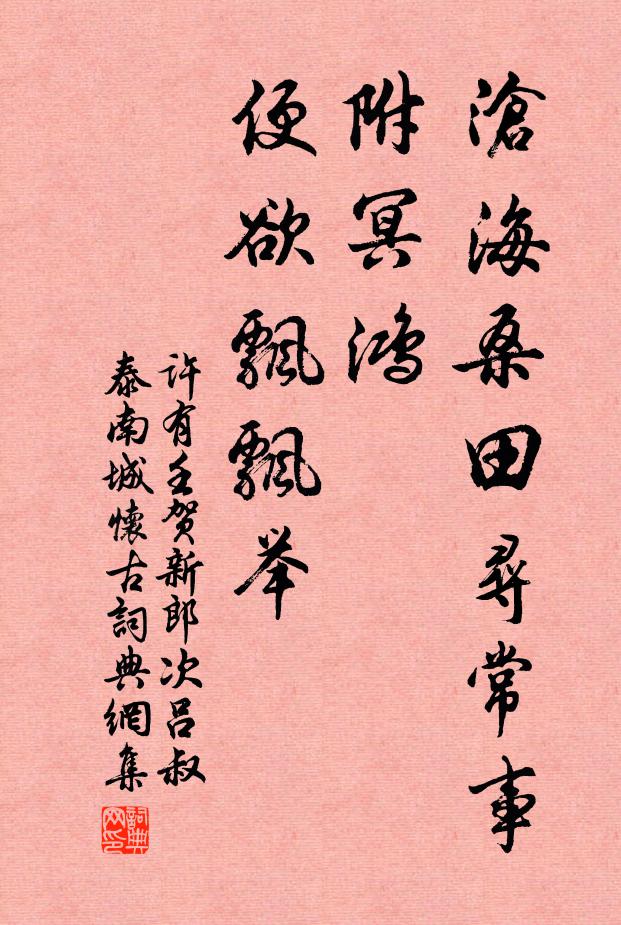 滄海桑田尋常事
附冥鴻
便欲飄飄举
许有壬贺新郎次吕叔
泰南城懷古詞典網集
詞典网印